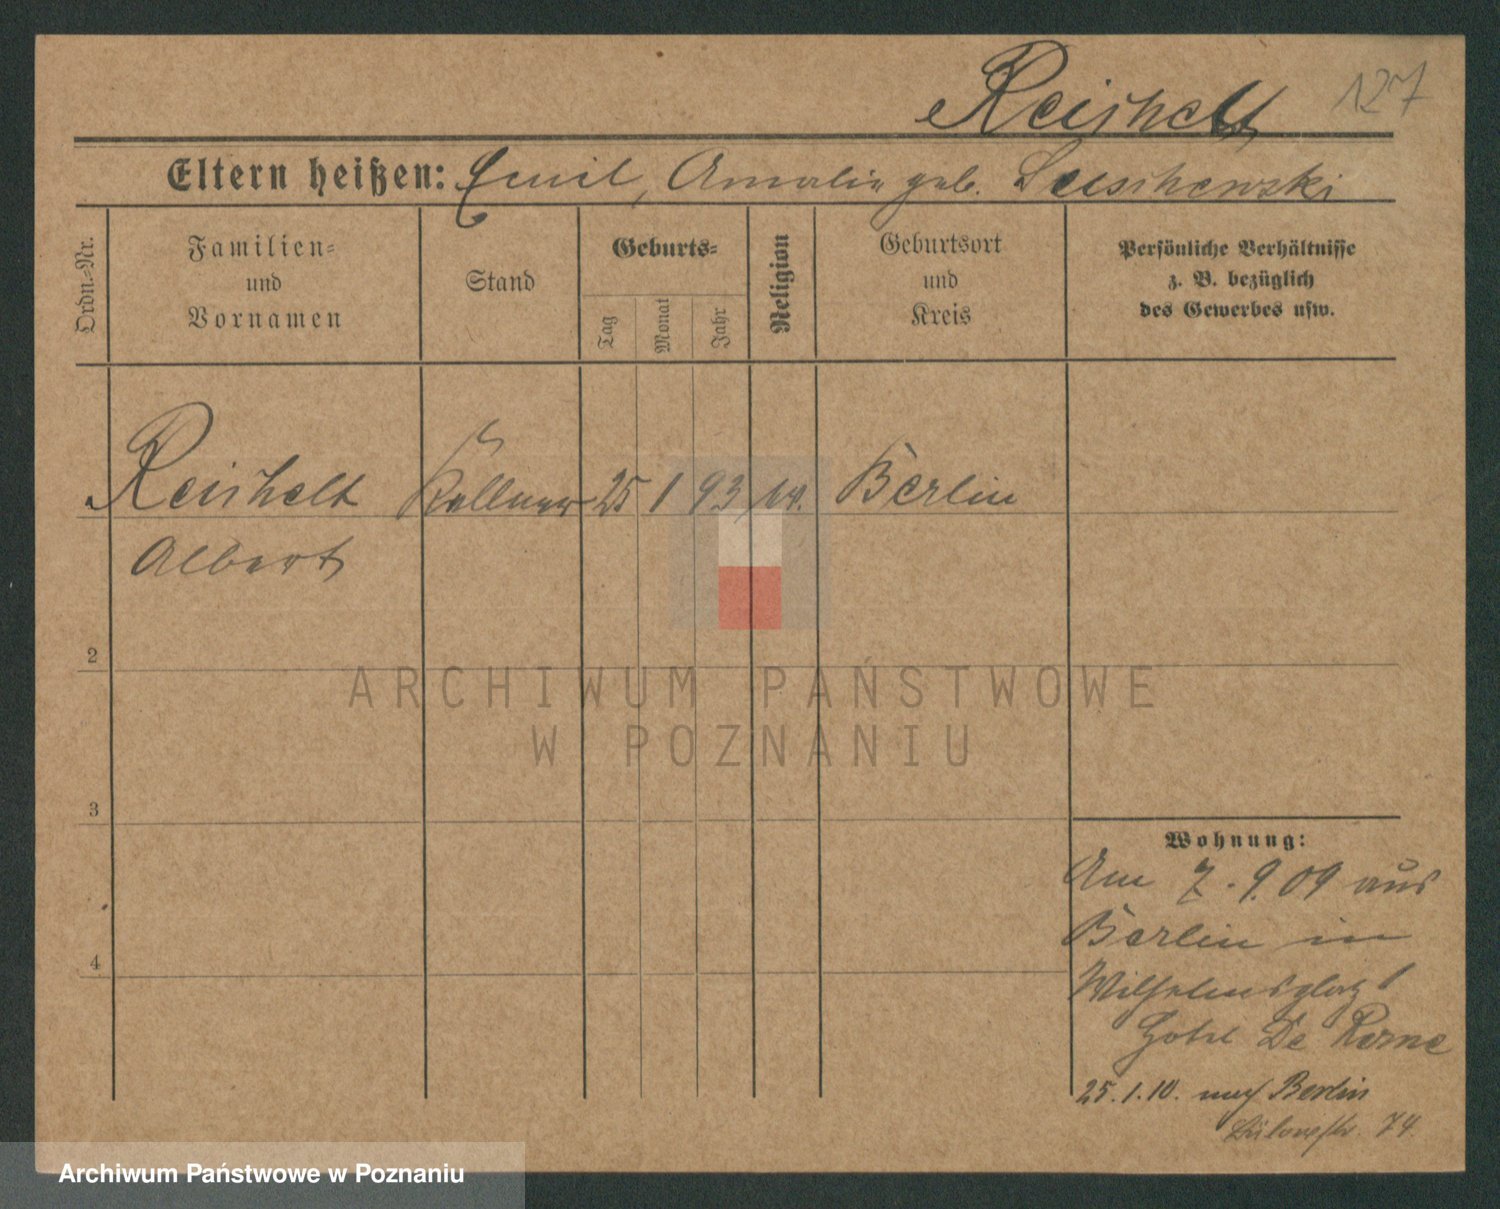 Reichelt 127
Eltern heißen: Emil, Amalie geb. Leuschewski
Ordn.-Nr.
Familien-
und
Vornamen
Stand
Geburts-
Tag
Monat
Jahr
Religion
Geburtsort
und
Kreis
Persönliche Verhältnisse
z. B. bezüglich
des Gewerbes usw.
Reichelt Kellner 25 1 93 ev. Berlin
Albert
2
3
4
Wohnung:
Am 7.9.09 aus
Berlin in
Wilhelmsplatz 1
Hotel De Rome
25.1.10. nach Berlin
74
ARCHIWUM PAŃSTWOWE
W POZNANIU
Archiwum Państwowe w Poznaniu